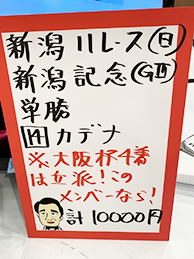 新潟11レース(日)
新潟記念(GⅢ)
単勝
14カデナ
※大阪杯4番
は立派!この
メンバーなら!
計10000円